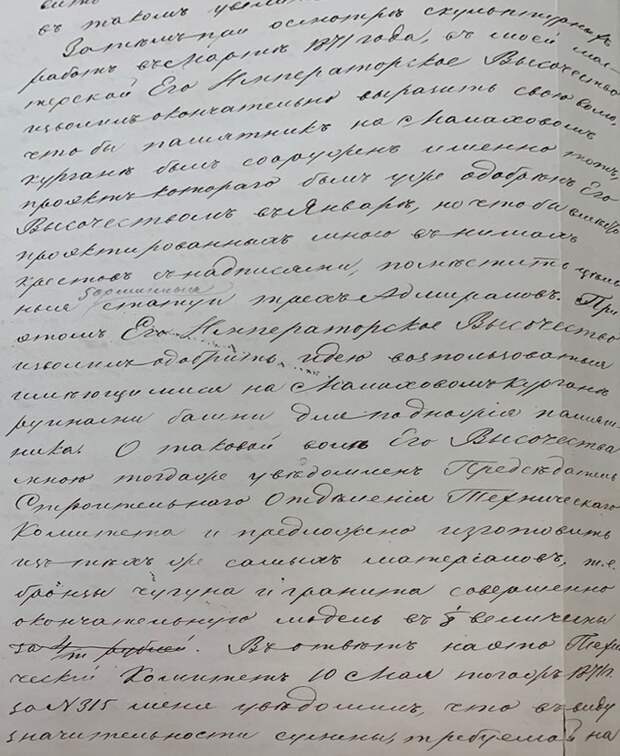 въ такомъ
Затѣмъ при осмотрѣ скульптурныхъ
работъ въ Мартѣ 1871 года, въ моей мас-
терской Его Императорское Высочество
изволилъ окончательно выразить свою волю,
что бы памятникъ на Малаховомъ
курганѣ былъ сооруженъ именно тотъ,
проэктъ котораго былъ уже одобренъ Его
Высочествомъ въ Январѣ, но что бы вмѣсто
проэктированныхъ мною въ нишахъ
крестовъ съ надписями, помѣстить цѣль-
ныя статуи трехъ Адмираловъ. При
этомъ Его Императорское Высочество
изволилъ одобрить идею воспользоваться
имѣющимися на Малаховомъ Курганѣ
руинами башни для подножія памят-
ника. О таковой волѣ Его Высочества
мною тогда же увѣдомленъ Предсѣдатель
Строительнаго Отдѣленія Техническаго
Комитета и предложено изготовить
изъ тѣхъ же самыхъ матеріаловъ, т.е.
бронзы чугуна и гранита совершенно
окончательную модель въ величины
за рублей. Въ отвѣтъ на это Техни-
ческій Комитетъ 10 Мая того же 1871 г.
за N 315 меня увѣдомилъ, что въ виду
значительности суммы, требуемой на